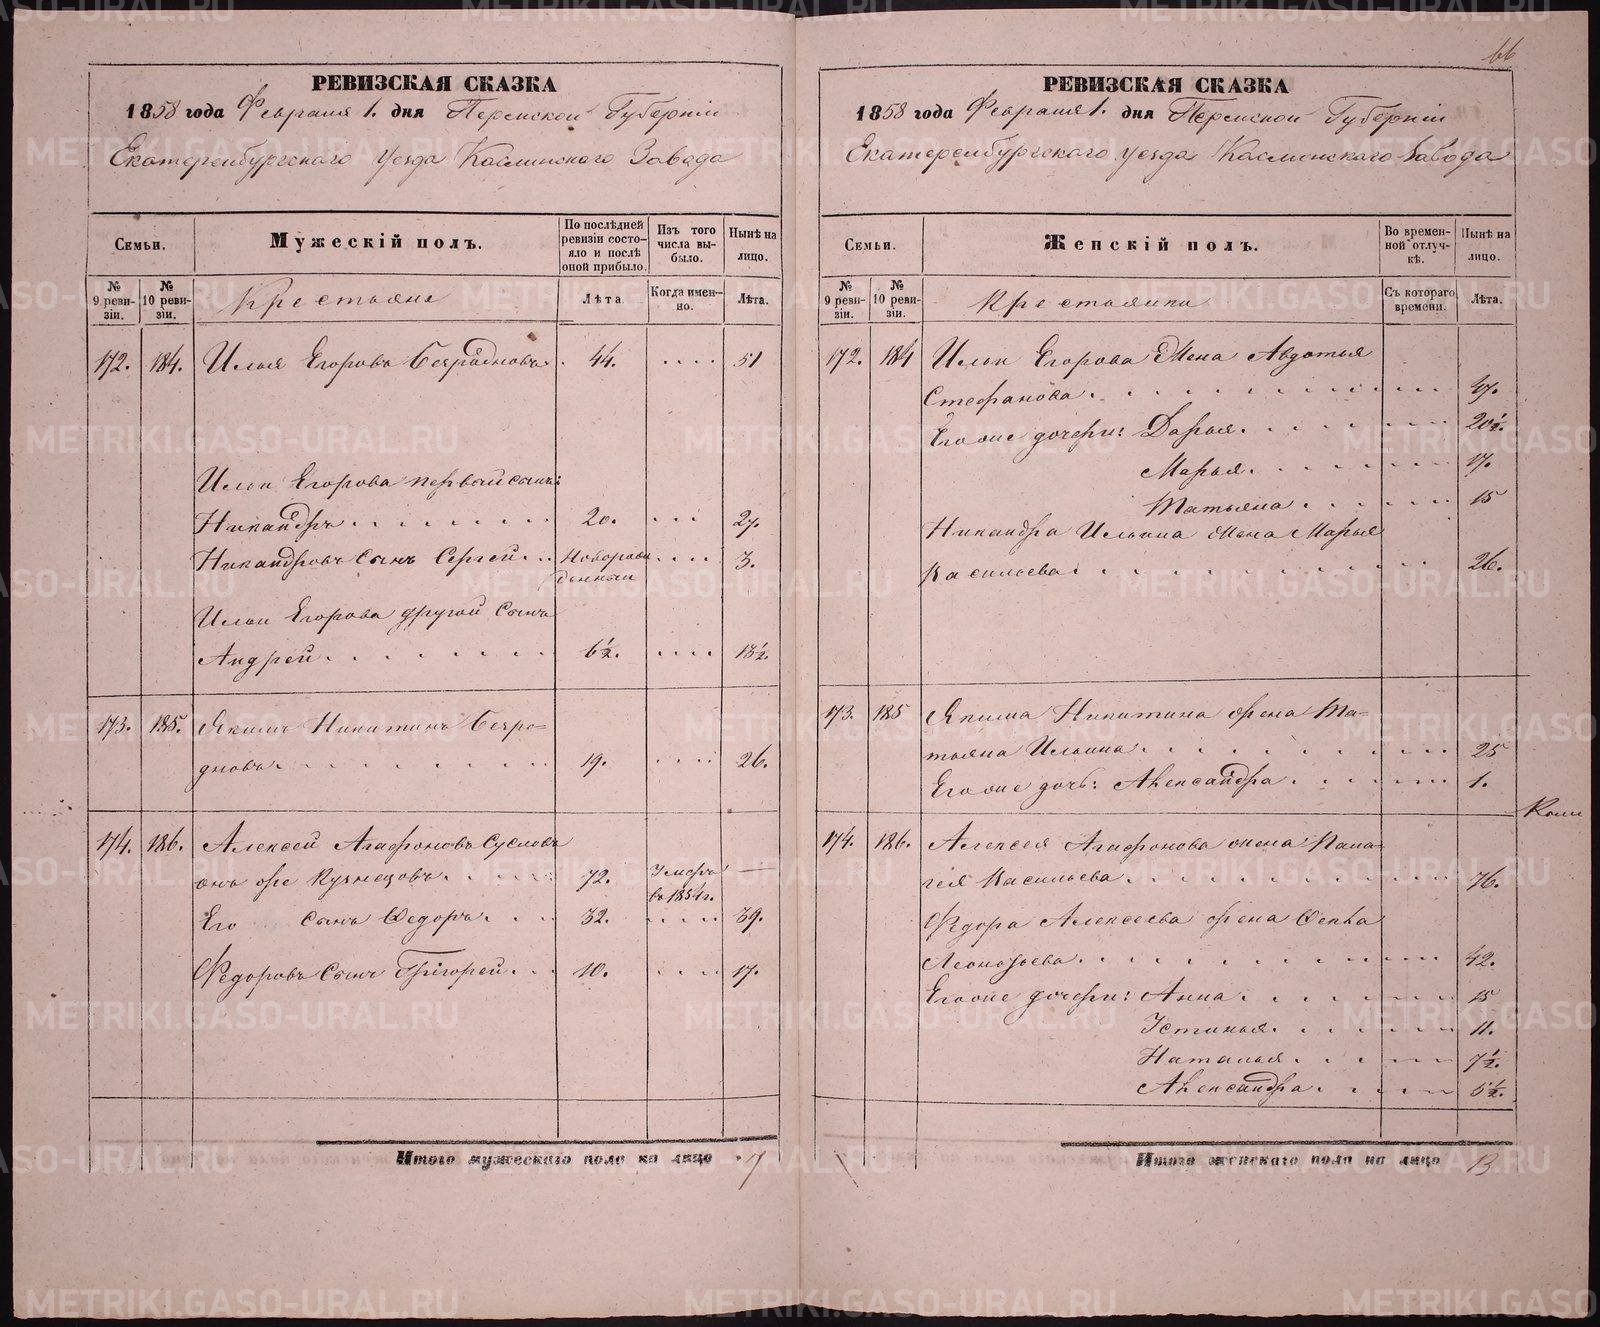 66
РЕВИЗСКАЯ СКАЗКА
1858 года Февраля 1. дня Пермской Губерніи
Екатеринбургскаго уезда Каслинскаго Завода
Семьи.
Мужескій полъ.
По послѣдней ревизіи состояло и послѣ оной прибыло.
Изъ того числа выбыло.
Нынѣ на лицо.
№ 9 ревизіи.
№ 10 ревизіи.
Крестьяне
Лѣта.
Когда именно.
Лѣта.
172. 184. Илья Егоровъ Безрадновъ. 44. .... 51
Ильи Егорова первый сынъ:
Никандръ . . . . . . . . 20. ... 27.
Никандровъ Сынъ Сергей . . Новорож .... 3.
денный
Ильи Егорова другой Сынъ
Андрей . . . . . . . . 6½. .... 13½.
173. 185. Якимъ Никитинъ Безра-
дновъ . . . . . . . . 19. .... 26.
174. 186. Алексей Агафоновъ Сусловъ
онъ же Кузнецовъ . . . . . 72. Умеръ —
въ 1854 г.
Его сынъ Федоръ . . . 32. .... 39.
Федоровъ Сынъ Григорей . . . 10. .... 17.
Итого мужескаго пола на лицо 7
РЕВИЗСКАЯ СКАЗКА
1858 года Февраля 1. дня Пермской Губерніи
Екатеринбургскаго уезда Каслинскаго Завода
Семьи.
Женскій полъ.
Во временной отлучкѣ.
Нынѣ на лицо.
№ 9 ревизіи.
№ 10 ревизіи.
Крестьянки
Съ котораго времени.
Лѣта.
172. 184 Ильи Егорова Жена Авдотья
Стефанова . . . . . . . . 47.
Его же дочери: Дарья . . . . . . 20½.
Марья . . . . . . 17.
Татьяна . . . . . 15
Никандра Ильина Жена Марья
Васильева . . . . . . . . 26.
173. 185 Якима Никитина жена Та-
тьяна Ильина . . . . . . . . 25
Его же дочь: Александра . . . . . 1.
Касли
174. 186. Алексея Агафонова жена Пела-
гея Васильева . . . . . . . . 76.
Федора Алексеева жена Фекла
Леонтьева . . . . . . . . 42.
Его же дочери: Анна . . . . . . 15
Устинья . . . . . 11.
Наталья . . . . . 7½.
Александра . . . . 5½.
Итого женскаго пола на лицо 13
METRIKI.GASO-URAL.RU